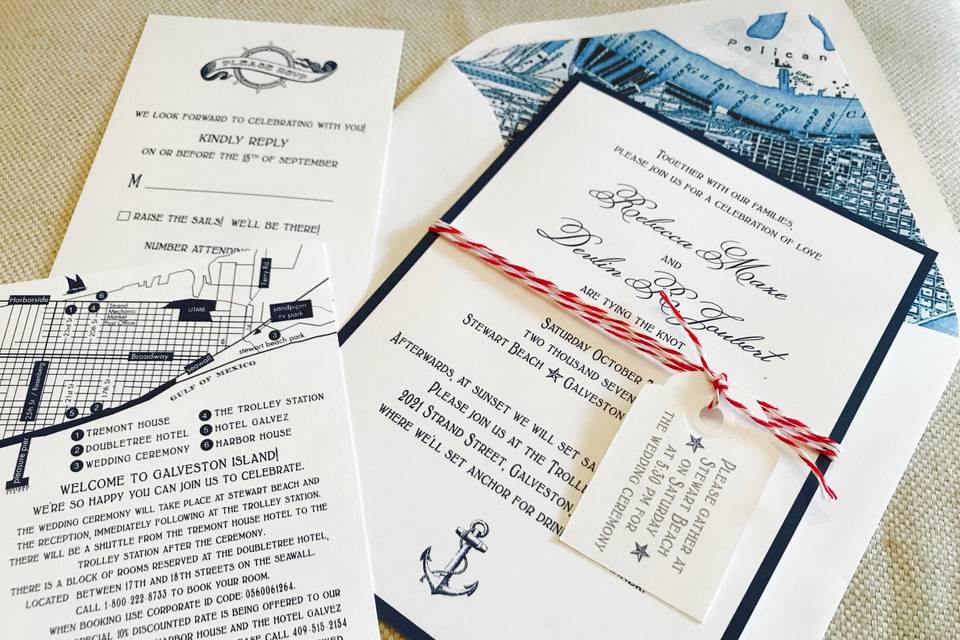 PLEASE RSVP
WE LOOK FORWARD TO CELEBRATING WITH YOU!
KINDLY REPLY
ON OR BEFORE THE 15TH OF SEPTEMBER
M
RAISE THE SAILS! WE'LL BE THERE!
NUMBER ATTENDING
Harborside
Strand
Mechanic
Market
Post Office
UTMB
Ferry Rd
sandp-per
rv park
stewart beach park
Broadway
seawall
GULF OF MEXICO
25th / Rosenberg
21st St
17th St
pleasure pier
1 TREMONT HOUSE
2 DOUBLETREE HOTEL
3 WEDDING CEREMONY
4 THE TROLLEY STATION
5 HOTEL GALVEZ
6 HARBOR HOUSE
WELCOME TO GALVESTON ISLAND!
WE'RE SO HAPPY YOU CAN JOIN US TO CELEBRATE.
THE WEDDING CEREMONY WILL TAKE PLACE AT STEWART BEACH AND
THE RECEPTION, IMMEDIATELY FOLLOWING AT THE TROLLEY STATION.
THERE WILL BE A SHUTTLE FROM THE TREMONT HOUSE HOTEL TO THE
TROLLEY STATION AFTER THE CEREMONY.
THERE IS A BLOCK OF ROOMS RESERVED AT THE DOUBLETREE HOTEL,
LOCATED BETWEEN 17TH AND 18TH STREETS ON THE SEAWALL.
CALL 1-800-222-8733 TO BOOK YOUR ROOM.
WHEN BOOKING USE CORPORATE ID CODE: 0560061264.
SPECIAL 10% DISCOUNTED RATE IS BEING OFFERED TO OUR
HARBOR HOUSE AND THE HOTEL GALVEZ
PLEASE CALL 409-515-2154
Pelican
Galveston
TOGETHER WITH OUR FAMILIES,
PLEASE JOIN US FOR A CELEBRATION OF LOVE
Rebecca Maze
AND
Devlin R. Jaubert
ARE TYING THE KNOT
SATURDAY OCTOBER
TWO THOUSAND SEVEN
STEWART BEACH ★ GALVESTON
AFTERWARDS, AT SUNSET WE WILL SET SA
PLEASE JOIN US AT THE TROLLE
2021 STRAND STREET, GALVESTON,
WHERE WE'LL SET ANCHOR FOR DRIN
PLEASE GATHER AT
STEWART BEACH
ON SATURDAY
AT 5:30 PM FOR
THE WEDDING CEREMONY